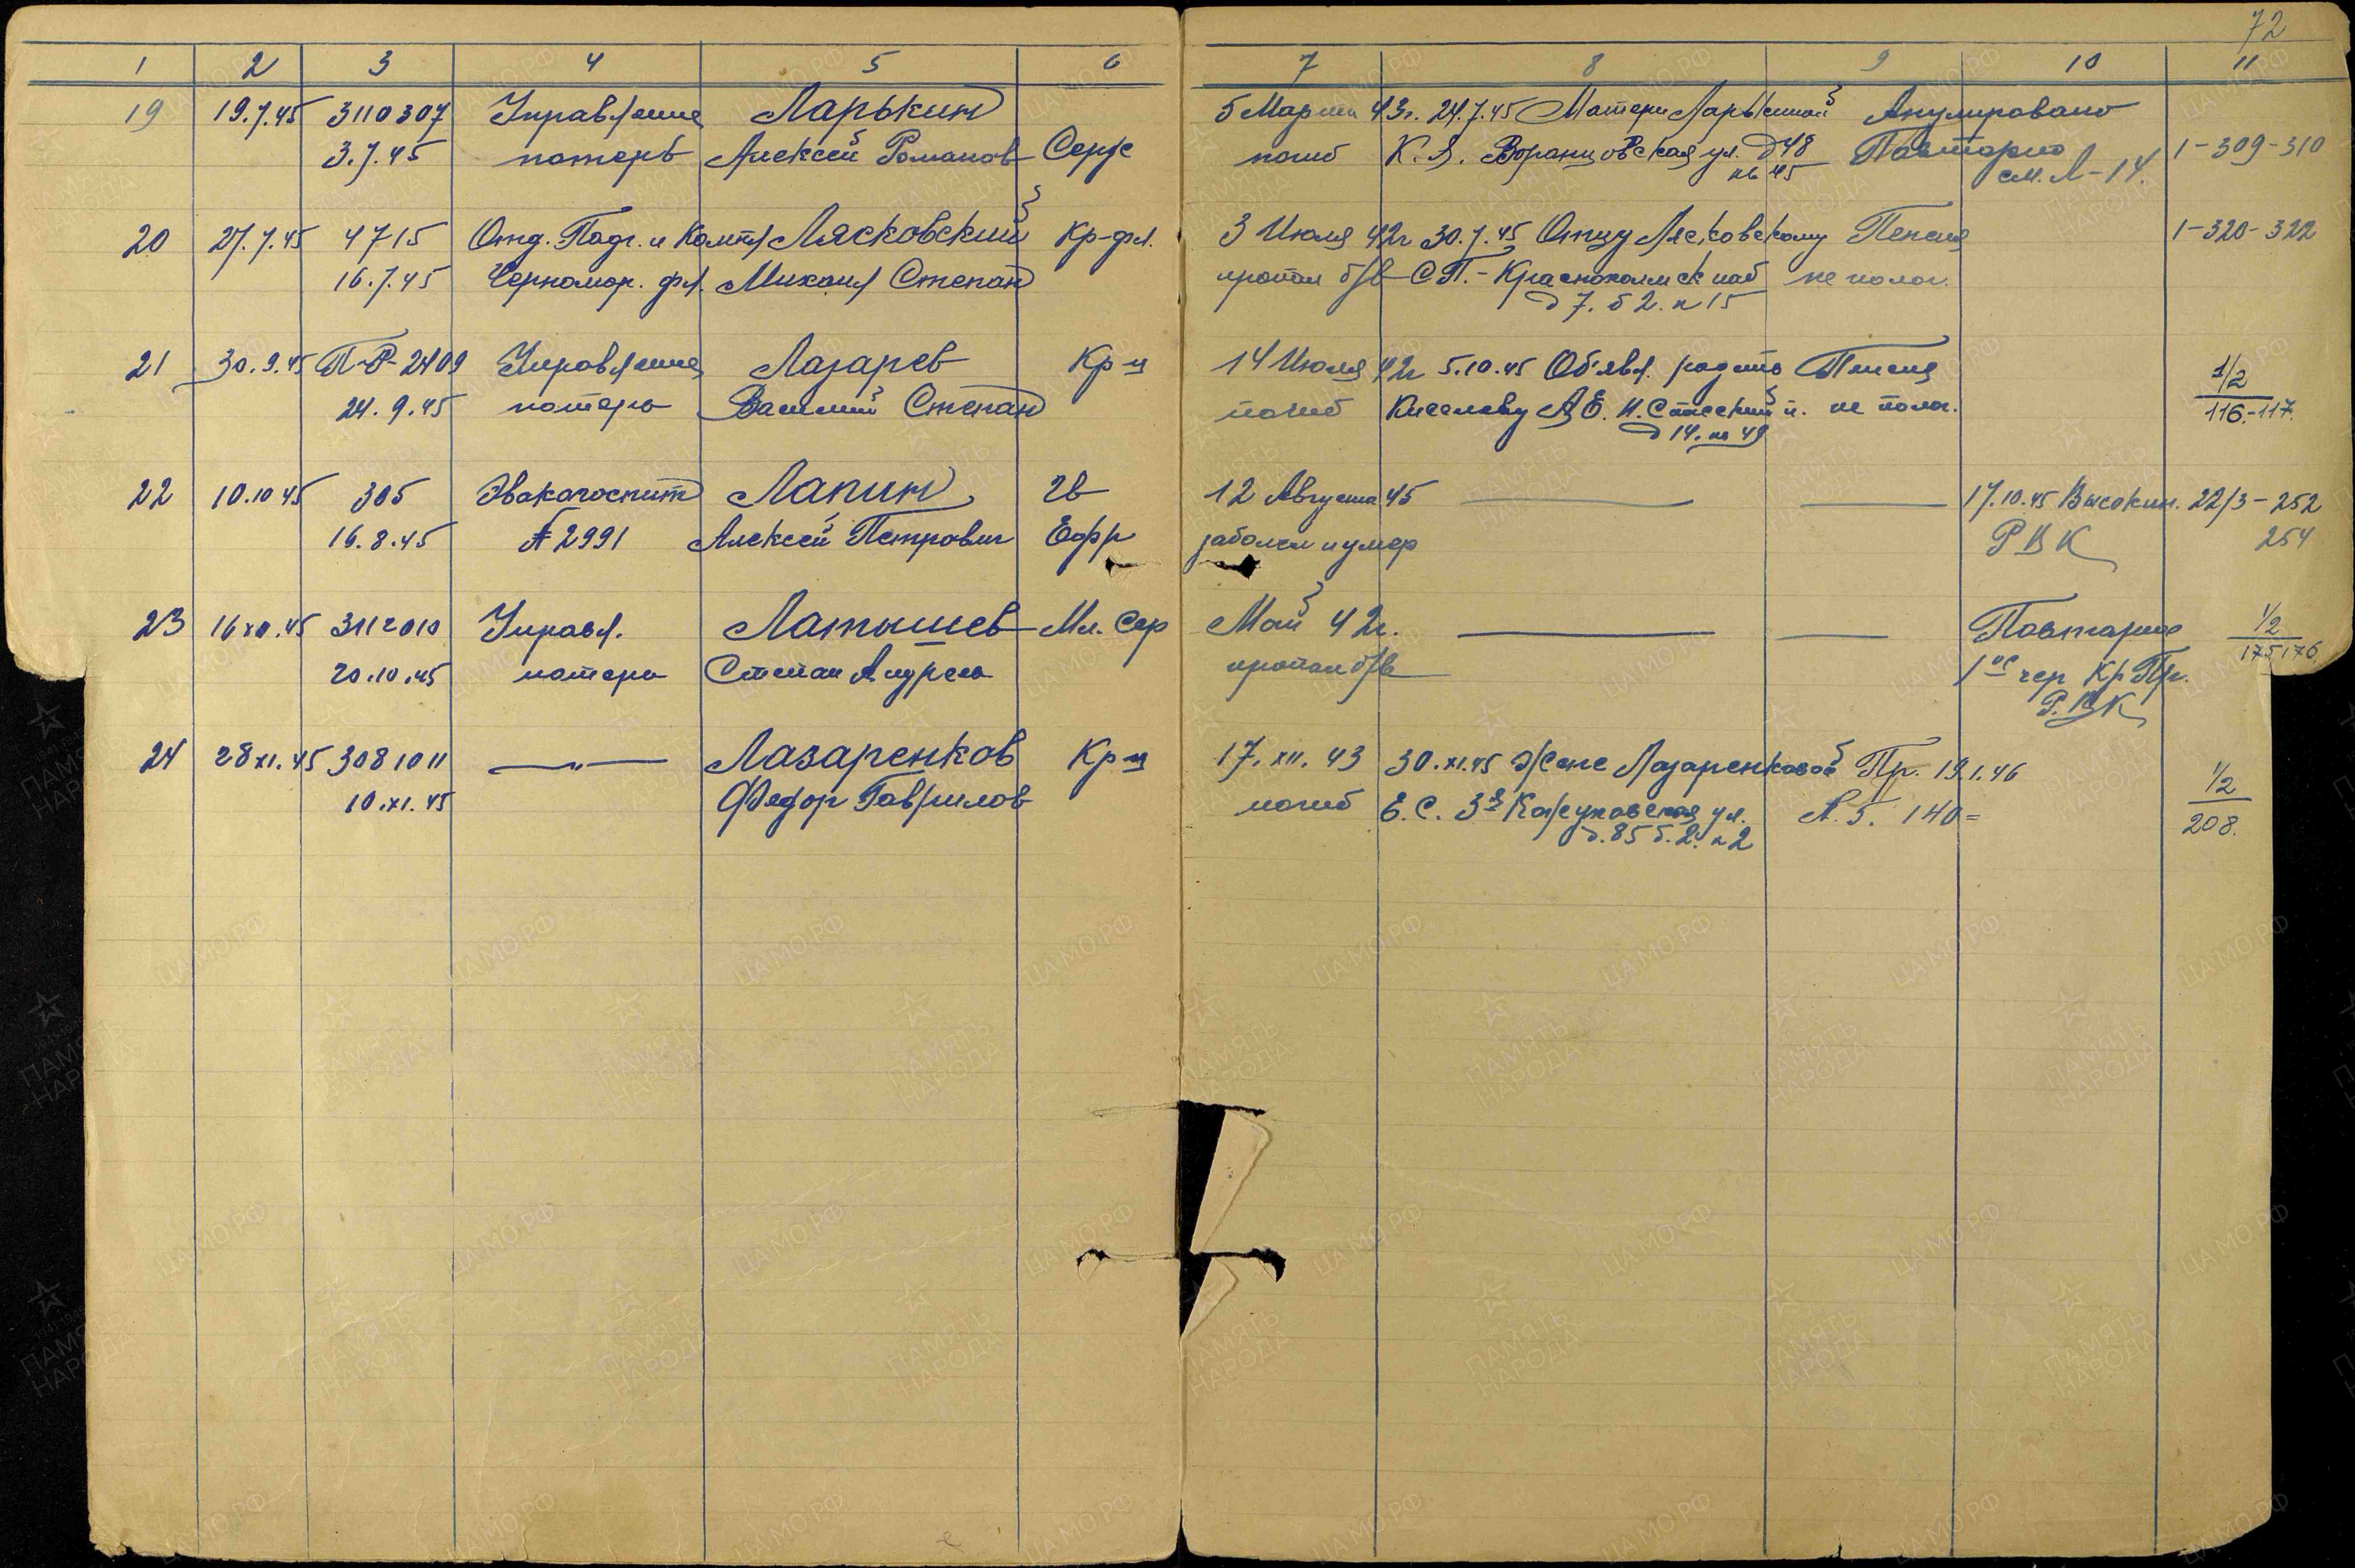 72
1 2 3 4 5 6 7 8 9 10 11
19 19.7.45 3110307 Управление Ларькин 5 Марта 43г. 24.7.45 Матери Ларькиной Анулировано
3.7.45 потерь Алексей Романов Серж погиб К.Я. Воранцовская ул. д 48 Повторно 1-309-310
кв 45 см. Л-14.
20 27.7.45 4715 Отд. Подг. и Компл Лясковский Кр-фл. 3 Июля 42г 30.7.45 Отцу Лясковскому Пенсия 1-320-322
16.7.45 Черномор. фл. Михаил Степан пропал б/в С.П. - Краснохолмск наб не полог.
д 7. б 2. к 15
21 30.9.45 П-Р-2409 Управление Лазарев Кр-ц 14 Июля 42г 5.10.45 Об'явл. родств Пенсия 1/2
24.9.45 потерь Василий Степан погиб Киселеву А.Е. Н. Спасский п. не полог. 116.-117.
д 14. кв 49
22 10.10 45 305 Эвакогоспит Лапин гв 12 Августа 45 17.10.45 Высокин. 22/3-252
16.8.45 № 2991 Алексей Петрович Ефр заболел и умер Р В К 254
23 16 x0.45 3112010 Управл. Латышев Мл. Сер Май 42г. Повторное 1/2
20.10.45 потерь Степан Андреев пропал б/в 1ое чер Кр Пр. 175 176
Р.В.К
24 28 XI.45 3081011 —„— Лазаренков Кр-ц 17.XII.43 30.XI.45 Жене Лазаренковой Пр. 19.1.46 1/2
10.XI.45 Федор Гаврилов погиб Е.С. 3я Кожуховская ул. А.5. 140= 208.
д.85 б.2. к 2